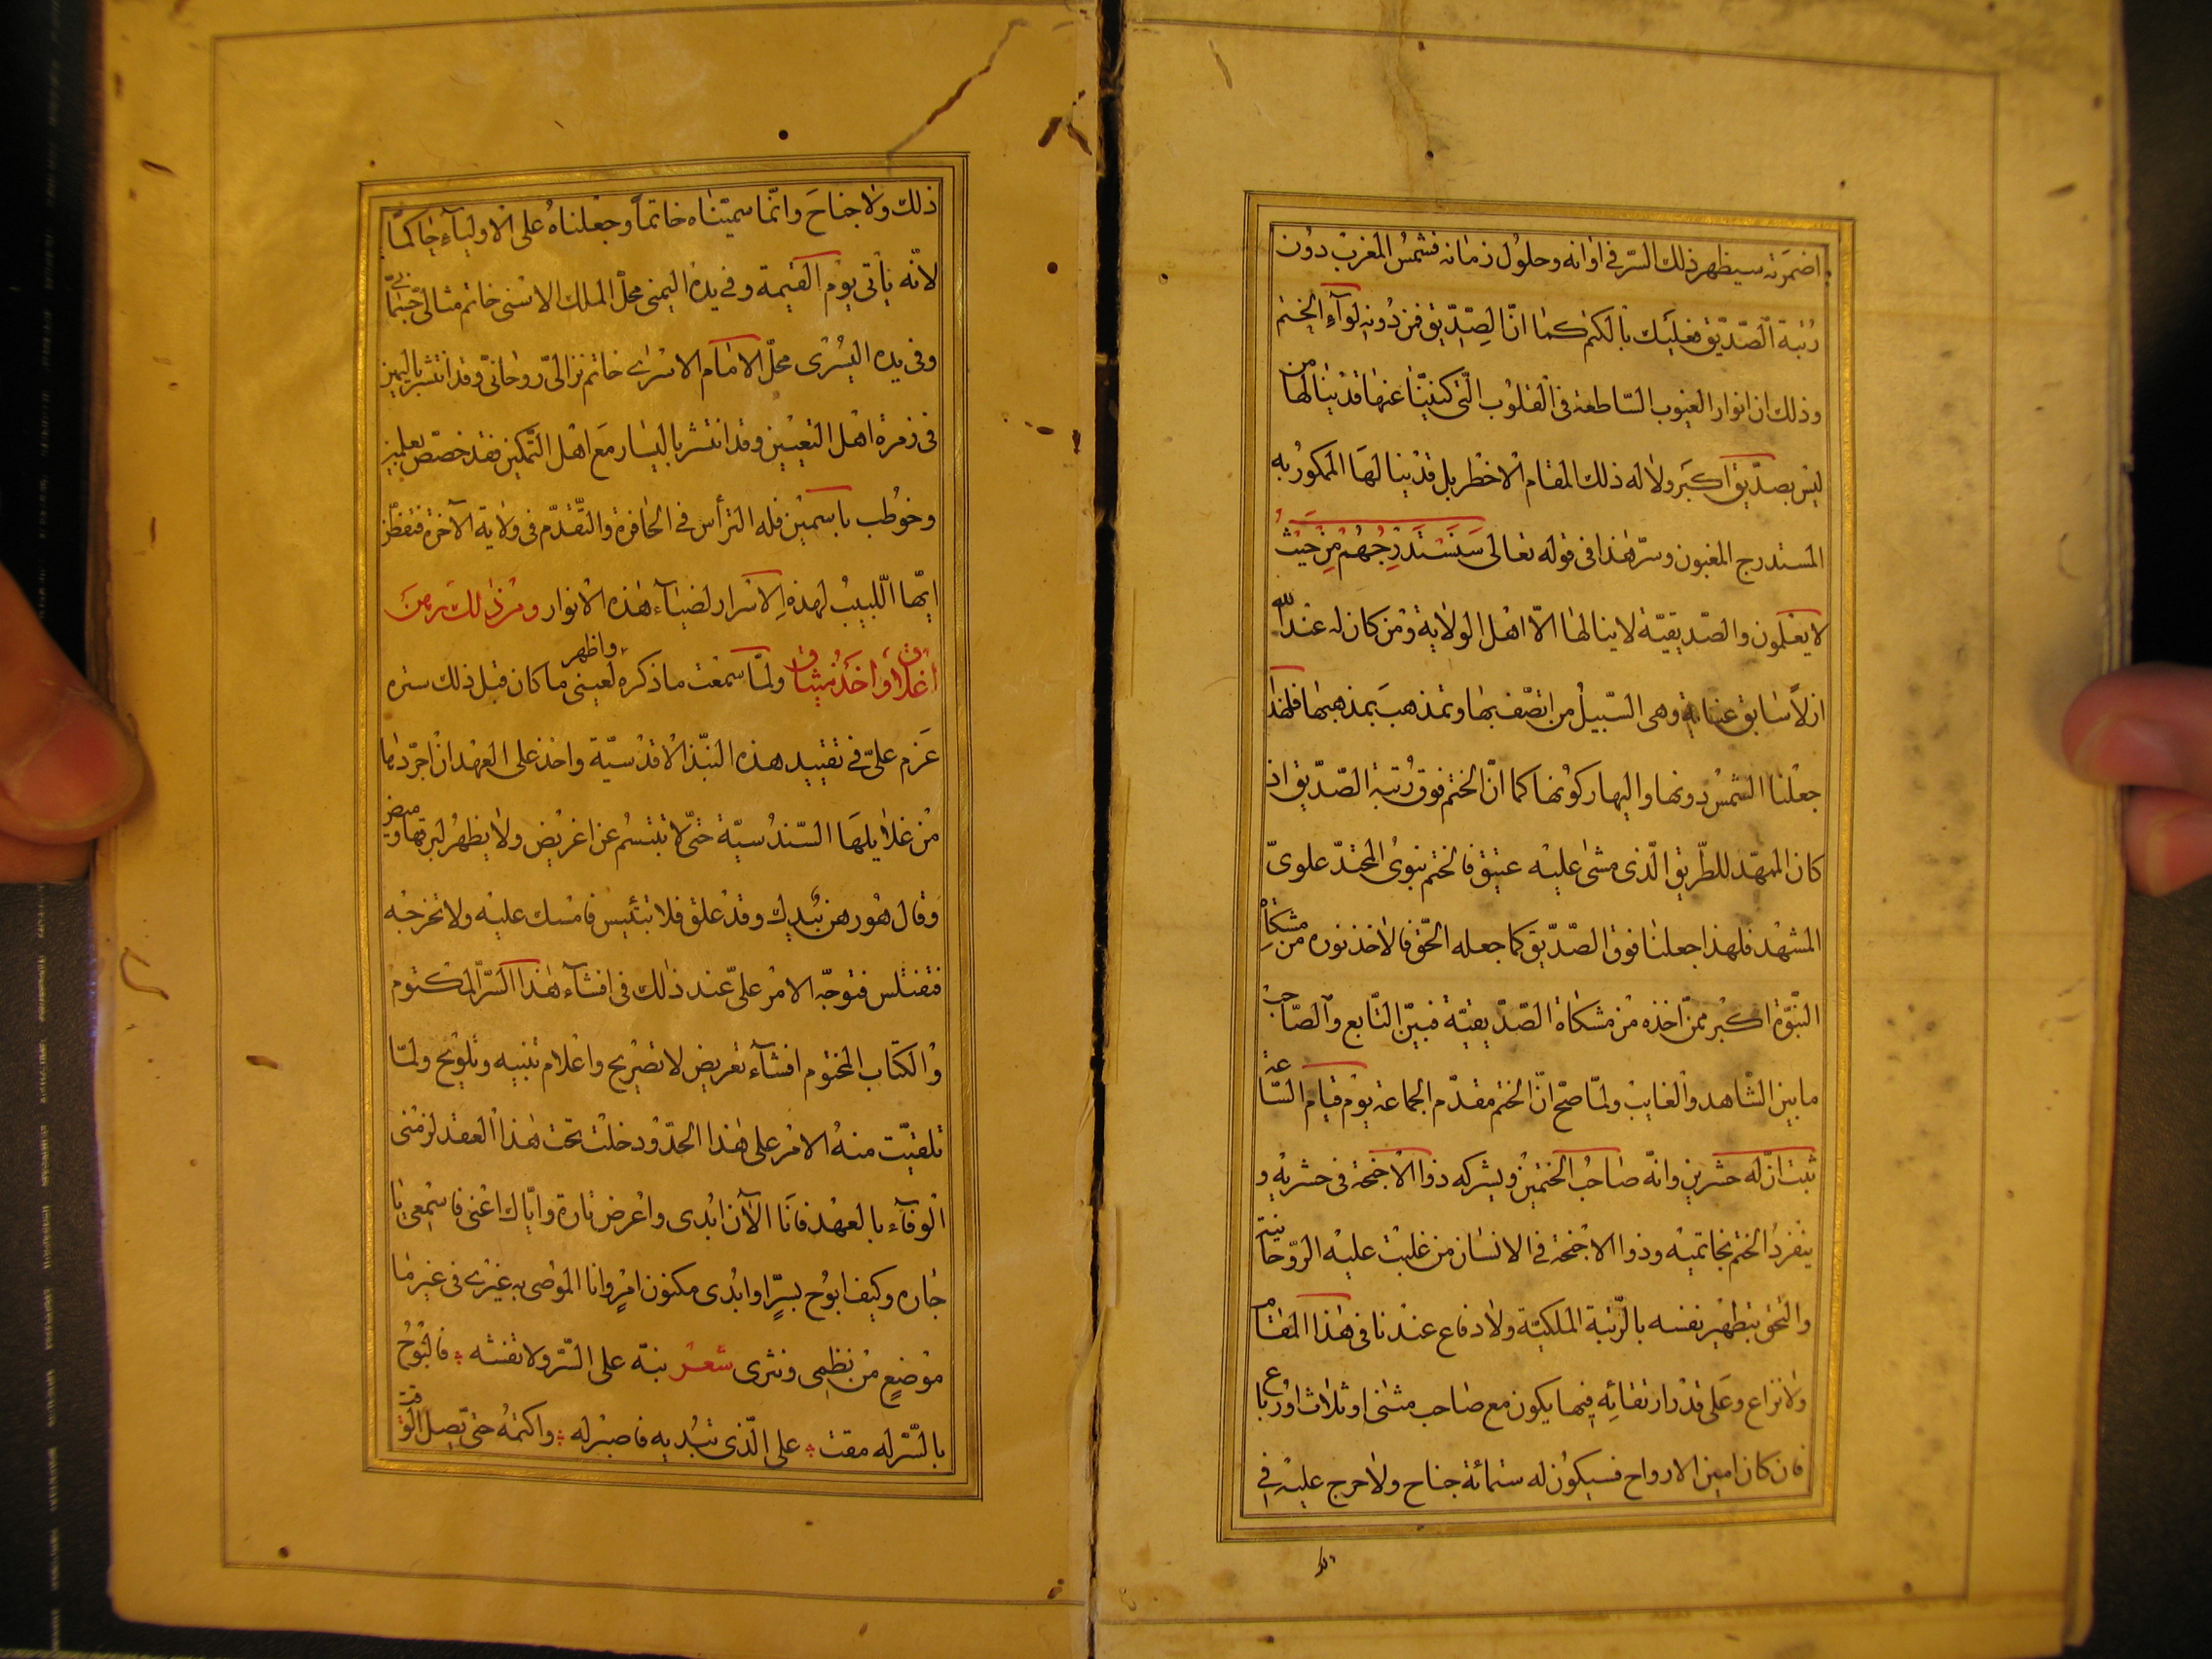 اضمرته سيظهر ذلك السّر فى اوانه وحلول زمانه فشمسُ المغرب دون
رُتبة الصّدّيق فعليك بالكتم كما انّ الصّدّيق فمن دونه لواء الختم
وذلك ان انوار الغيوب السّاطعة فى القلوب الّتى كنينا عنها قد ينالها من
ليس بصدّيق اكبر ولا له ذلك المقام الاخطر بل قد ينالها الممكور به
المستدرج المغبون وسرّ هٰذا فى قوله تعالى سَنَسْتَدْرِجُهُمْ مِنْ حَيْثُ
لا يعلمون والصّديقيّة لا ينالها الّا اهل الولاية ومن كان له عند الله
ازلاً سابق عناية وهى السّبيل من اتصّف بها وتمذهبَ بمذهبها فلهذا
جعلنا الشّمس دونها واليها ركونها كما انّ الختم فوق رُتبة الصّدّيق اذ
كان الممهّد للطّريق الّذى مشى عليه عتيق فالختم نبوىُ المحتد علوىّ
المشهد فلهذا جعلنا فوق الصّدّيق كما جعله الحّق فالاخذ نوره من مشكاة
النّبوّة اكبر ممّن اخذه من مشكاة الصّدّيقيّة فبين التّابع والصّاحب
ما بين الشّاهد والغايب ولمّا صحّ انّ الختم مقدّم الجماعة يوم قيام السّاعة
ثبت انّ له حشرين وانّه صاحبُ الختمين ويشركه ذوا الاجنحة فى حشريه و
ينفردُ الختم بخاتميه وذوا الاجنحة فى الانسان من غلبت عليه الرّوحانية
والتحق بتطهير نفسه بالرّتبة الملكيّة ولا دفاع عندنا فى هٰذا المقام
ولا نزاع وعلى قدر ارتقائه فيها يكون مع صاحب مثنى او ثلاث او رُباع
فان كان امين الارواح فسيكون له ستمائة جناح ولا حرج عليه فى
ذلك ولا جناحَ وانّما سميّناه خاتماً وجعلناهُ على الاولياء حاكماً
لانّه ياتى يوم القيٰمة وفى يده اليمنى محلّ الملك الاسنى خاتم مثالىّ جسمانىّ
وفى يده اليُسْرى محلّ الامام الاسرى خاتم نزالىّ روحانىّ وقد انتشر باليمين
فى زمرة اهل التعيين وقد انتشر باليسار مع اهل التّمكين فقد خصّص بعلمين
وخوُطب باسمين فله الترأس فى الحافرة والتّقدّم فى ولاية الآخرة فتفطّن
ايّها اللّبيبُ لهذهِ الاسرار لضياء هٰذه الانوار ومن ذٰلك رهن
اغلاق واخذ ميثاق ولمّا سمعت ما ذكره واظهر لعينى ما كان قبل ذلك ستره
عَزم علىّ فى تقييد هذه النبّذ الاقدسيّة واخذ على العهد ان اجرّدها
من غلايلها السّندُسيّة حتّى لا تبتسمُ عن اغريض ولا يظهر لبرقها وميض
وقال هُو رهن بيدك وقد غلق فلا تبتئيس فامسك عليه ولا تخرجه
فتفتلس فتوجّه الامر علىّ عند ذٰلك فى افشاء هٰذا السّرّ المكتوم
والكتاب المختوم افشاء تعريض لا تصريح واعلام تنبيه وتلويح ولمّا
تلقيّت منهُ الامر على هٰذا الحدّ ودخلت تحت هٰذا العقد لزمنى
الوفاء بالعهد فانَا الآن ابُدى واعرض تارة وايّاك اعنى فاسمعى يا
جاره وكيف ابوُح بسرٍّ او ابُدى مكنون امرٍ وانا الموصى به غيرى فى غير ما
موْضعٍ من نظمى ونثرى شعر نبّه على السّرّ ولا تفشه ؞ فالبَوْحُ
بالسّرّ له مقت ؞ على الّذى تبُديه فاصبر له ؞ واكتمهُ حتّى يصل الوقت